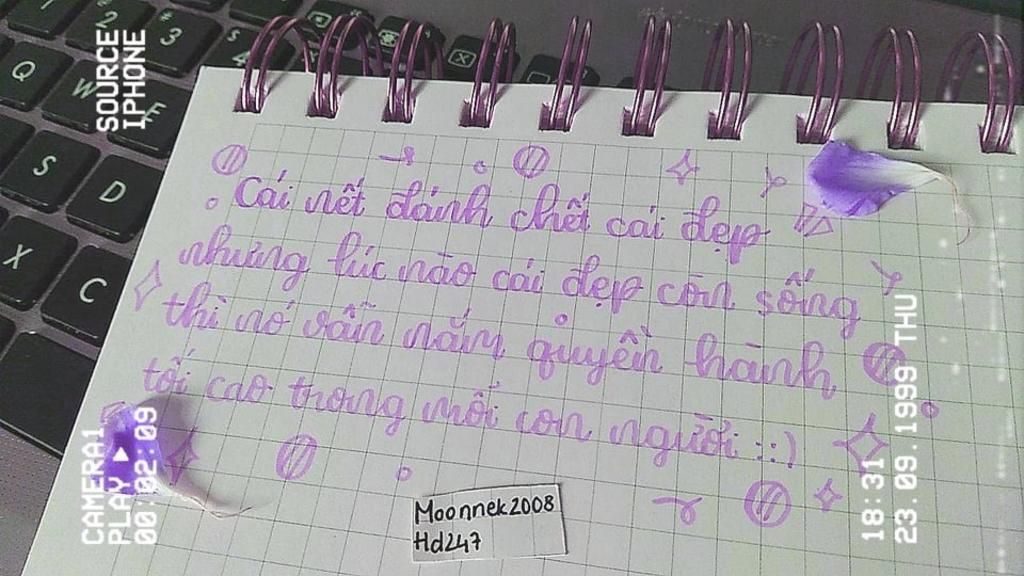 SOURCE
IPHONE
3
4
Q
W
E
S
D
X
C
Cái nết đánh chết cái đẹp
nhưng lúc nào cái đẹp còn sống
thì nó vẫn nắm quyền hành
tối cao trong mỗi con người ::)
CAMERA1
PLAY ▶
00:02:09
Moonnek2008
Hd247
18:31
23.09.1999 THU